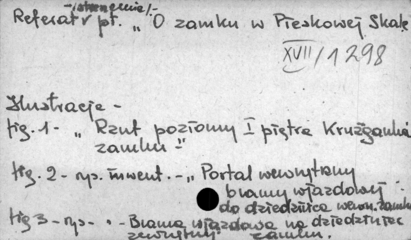 -/streszczenie/-
Referat pt. „O zamku w Pieskowej Skale
XVII/1298
Ilustracje -
fig. 1 - „Rzut poziomy I piętra Krużganku
zamku"
fig. 2 - rys. inwent. - „Portal wewnętrzny
bramy wjazdowej
do dziedzińca wewn. zamku
fig 3 - rys - " - Brama wjazdowa na dziedziniec
zewnętrzny zamku.